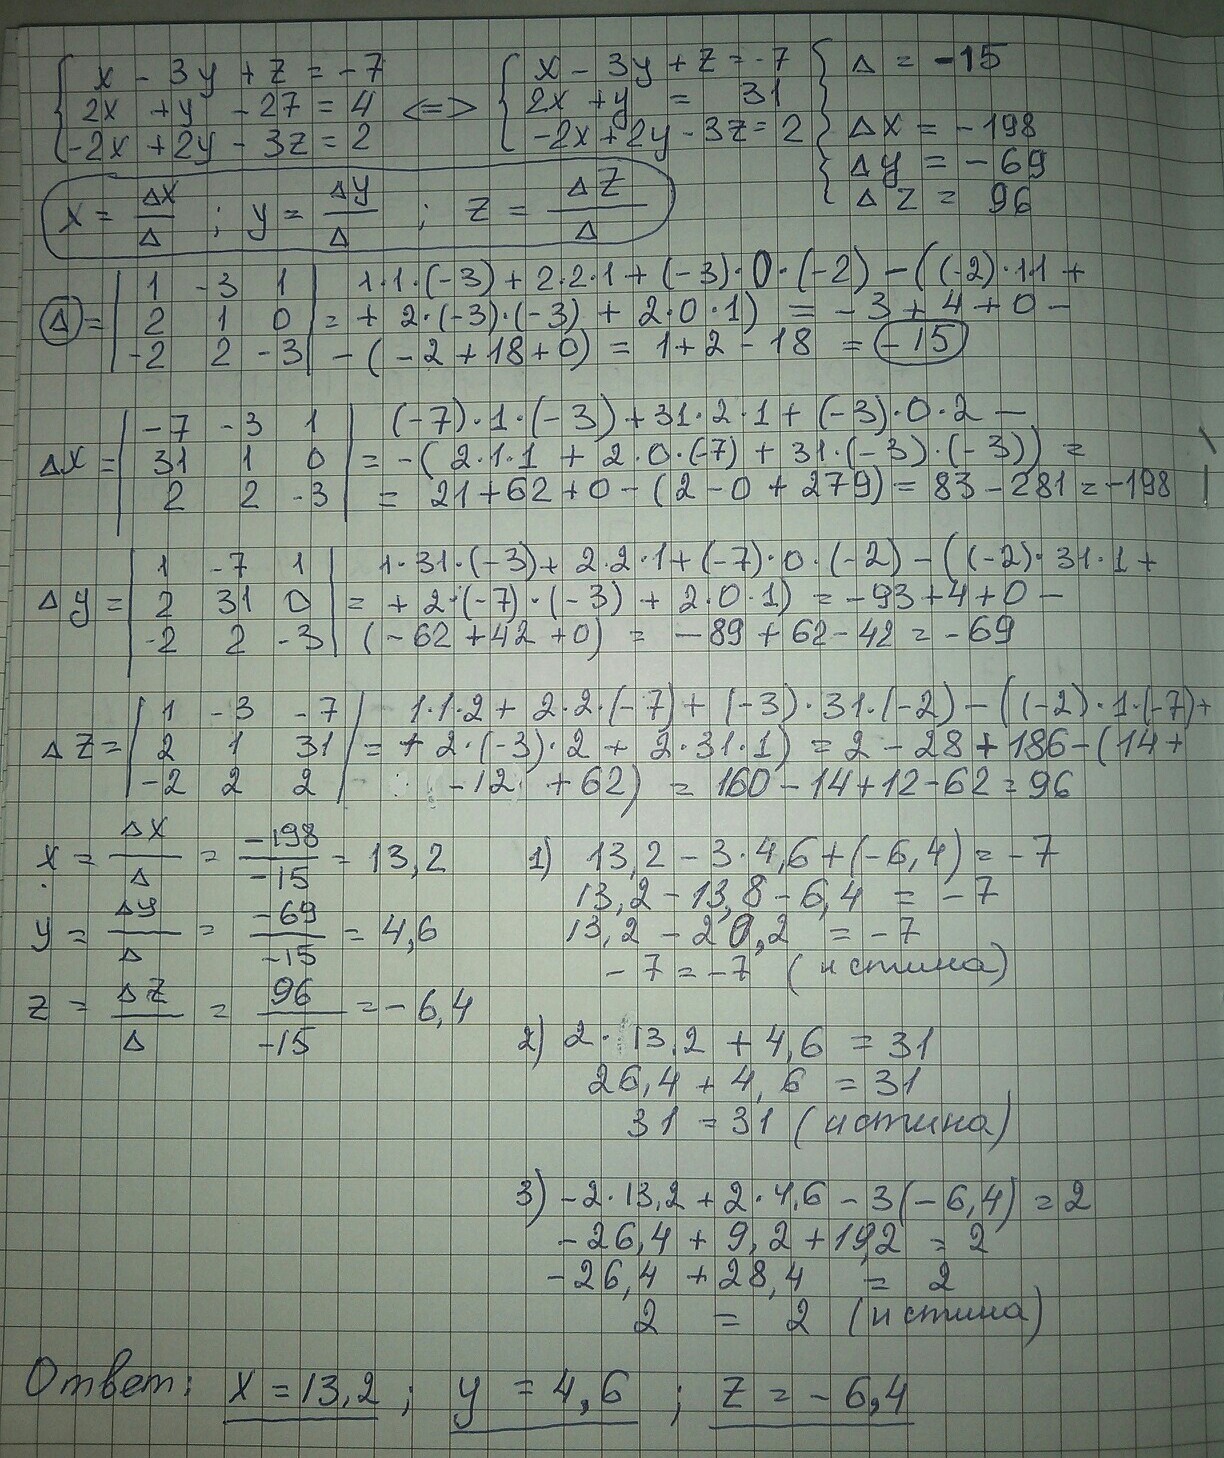 { x - 3y + z = -7
2x + y - 27 = 4 <=> { x - 3y + z = -7
2x + y = 31
-2x + 2y - 3z = 2
-2x + 2y - 3z = 2
{ Δ = -15
Δx = -198
Δy = -69
Δz = 96
x = Δx/Δ ; y = Δy/Δ ; z = Δz/Δ
Δ = | 1 -3 1 | 1·1·(-3) + 2·2·1 + (-3)·0·(-2) - ((-2)·1·1 +
| 2 1 0 | = + 2·(-3)·(-3) + 2·0·1) = -3 + 4 + 0 -
| -2 2 -3 | - (-2 + 18 + 0) = 1 + 2 - 18 = -15
Δx = | -7 -3 1 | (-7)·1·(-3) + 31·2·1 + (-3)·0·2 -
| 31 1 0 | = -(2·1·1 + 2·0·(-7) + 31·(-3)·(-3)) =
| 2 2 -3 | = 21 + 62 + 0 - (2 - 0 + 279) = 83 - 281 = -198
Δy = | 1 -7 1 | 1·31·(-3) + 2·2·1 + (-7)·0·(-2) - ((-2)·31·1 +
| 2 31 0 | = + 2·(-7)·(-3) + 2·0·1) = -93 + 4 + 0 -
| -2 2 -3 | (-62 + 42 + 0) = -89 + 62 - 42 = -69
Δz = | 1 -3 -7 | 1·1·2 + 2·2·(-7) + (-3)·31·(-2) - ((-2)·1·(-7) +
| 2 1 31 | = + 2·(-3)·2 + 2·31·1) = 2 - 28 + 186 - (14 +
| -2 2 2 | -12 + 62) = 160 - 14 + 12 - 62 = 96
x = Δx/Δ = -198/-15 = 13,2
y = Δy/Δ = -69/-15 = 4,6
z = Δz/Δ = 96/-15 = -6,4
1) 13,2 - 3·4,6 + (-6,4) = -7
13,2 - 13,8 - 6,4 = -7
13,2 - 20,2 = -7
-7 = -7 (истина)
2) 2·13,2 + 4,6 = 31
26,4 + 4,6 = 31
31 = 31 (истина)
3) -2·13,2 + 2·4,6 - 3(-6,4) = 2
-26,4 + 9,2 + 19,2 = 2
-26,4 + 28,4 = 2
2 = 2 (истина)
Ответ: x = 13,2 ; y = 4,6 ; z = -6,4